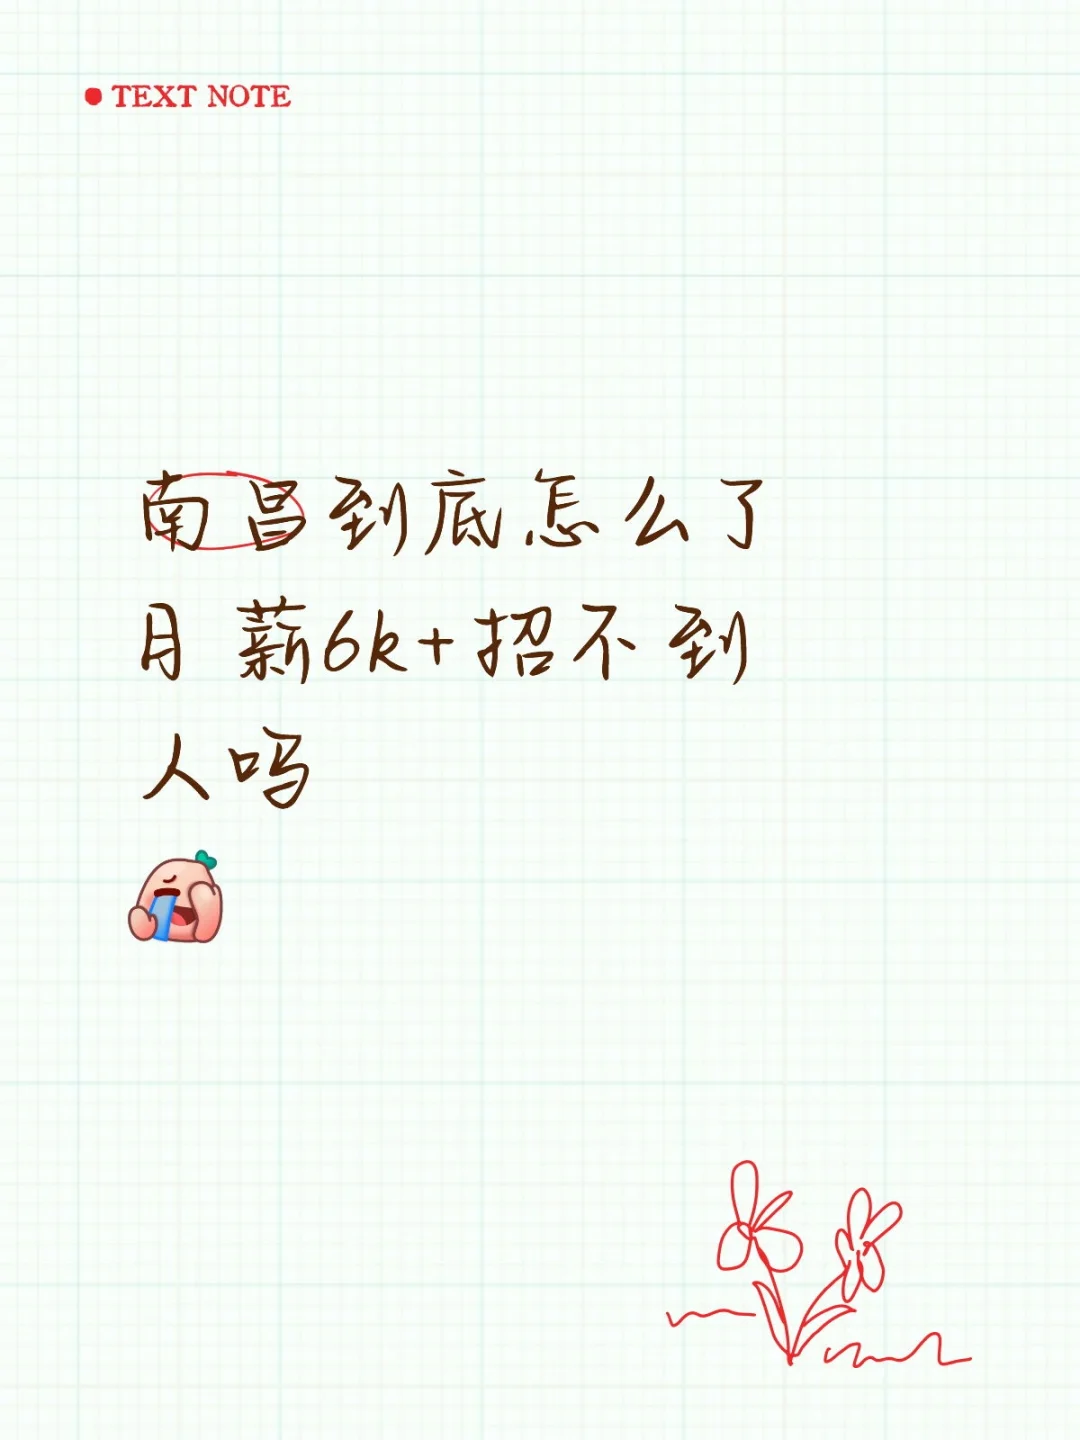 TEXT NOTE
南昌到底怎么了
月薪6k+招不到
人吗